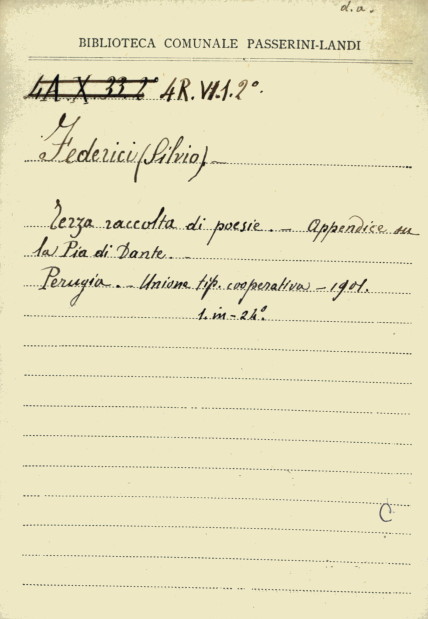 d.a.
BIBLIOTECA COMUNALE PASSERINI-LANDI
4A. X. 33 4R.VI.1.2°.
Federici (Silvio) _
Terza raccolta di poesie. _ Appendice su
la Pia di Dante. _
Perugia. _ Unione tip. cooperativa _ 1901.
1. in - 24°.
C